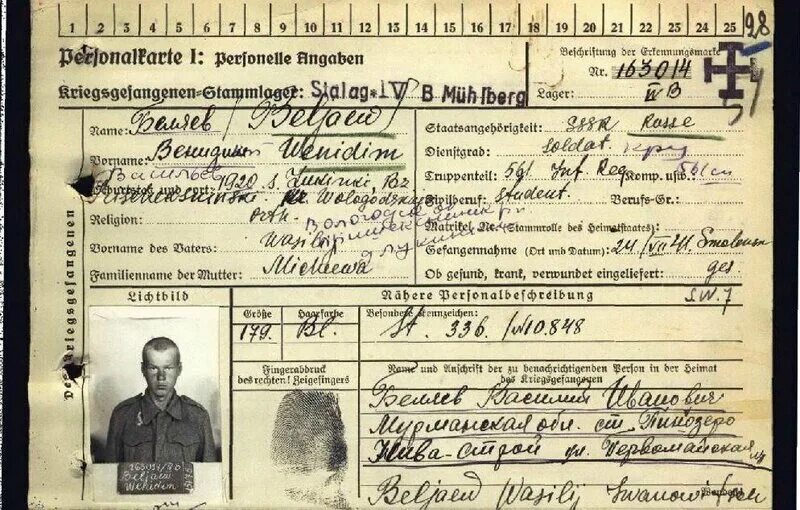 1 2 3 4 5 6 7 8 9 10 11 12 13 14 15 16 17 18 19 20 21 22 23 24 25
28
Personalkarte I: Personelle Angaben
Beschriftung der Erkennungsmarke
Nr. 163014
Kriegsgefangenen-Stammlager: Stalag IV B Mühlberg
Lager: IV B
Name: Беляев / Beljaew
Staatsangehörigkeit: SSSR Russe
Vorname: Wenidim
Dienstgrad: Soldat
Васильев
Truppenteil: 561 Inf. Reg. Komp. usw.:
Geburtstag und -ort: 1920 s.
Zivilberuf: Student Berufs-Gr.:
Religion: orth.
Matrikel Nr. (Stammrolle des Heimatstaates):
Vorname des Vaters: Wasilij
Gefangennahme (Ort und Datum): 24/VII 41 Smolensk
Familienname der Mutter: Micheewa
Ob gesund, krank, verwundet eingeliefert: ges.
Des Kriegsgefangenen
Lichtbild
Nähere Personalbeschreibung
S.W. 7
Größe
Haarfarbe
Besondere Kennzeichen:
179. Bl.
St. 336. / N10.848
Fingerabdruck
des rechten! Zeigefingers
Name und Anschrift der zu benachrichtigenden Person in der Heimat
des Kriegsgefangenen
Беляев Василий Иванович
Мурманская обл. ст. Пинозеро
Нива-Строй ул. Первомайская
Beljaew Wasilij Iwanowitsch
Beljaew
Wenidim